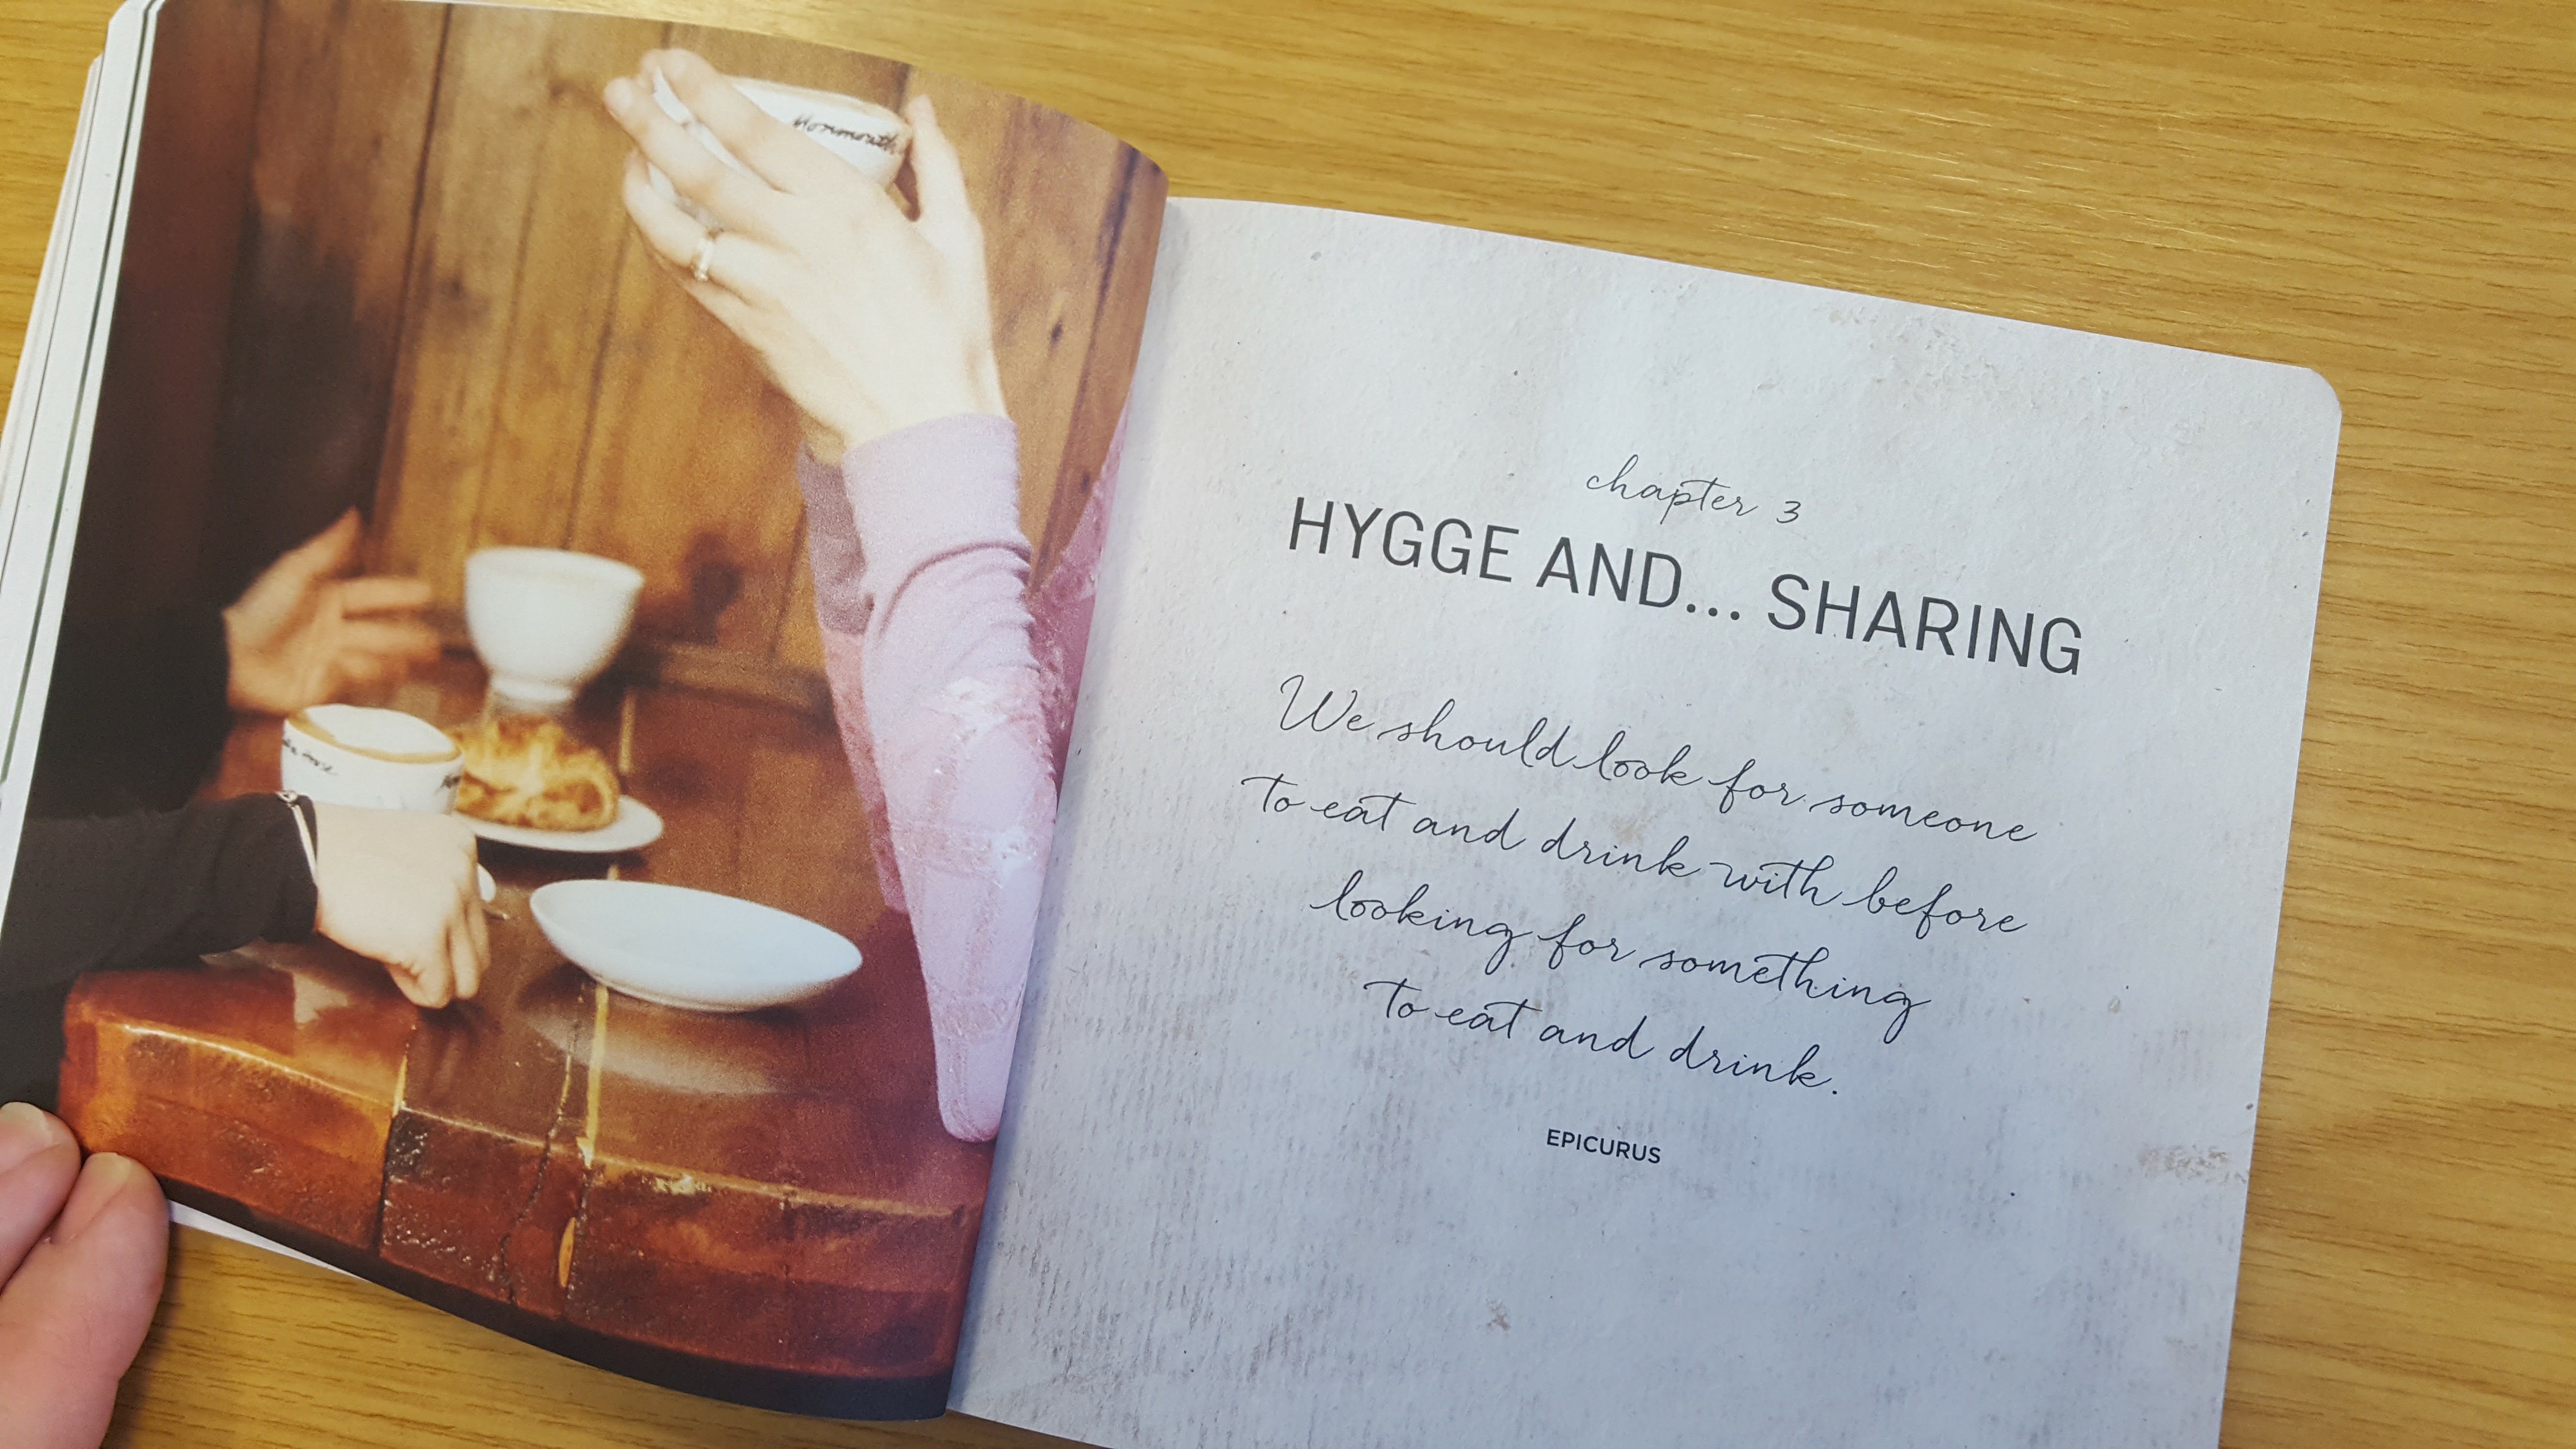 Monmouth
chapter 3
HYGGE AND... SHARING
We should look for someone
to eat and drink with before
looking for something
to eat and drink.
EPICURUS